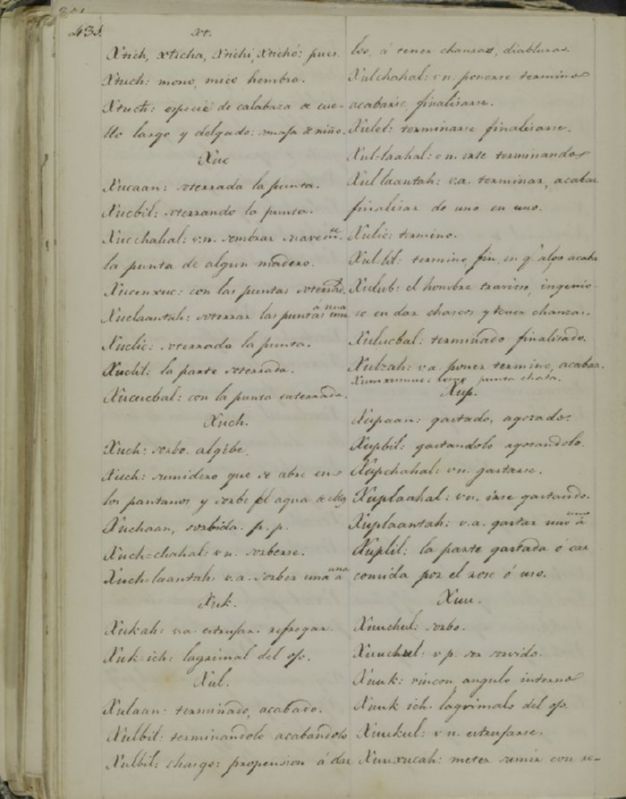 431.
xt.
Xtich, xticha, xtichi, xtichó: pues.
Xtuch: mono, mico hembra.
Xtuch: especie de calabaza de cue-
llo largo y delgado:
Xuc
Xucaan: soterrada la punta.
Xucbil: soterrando la punta.
Xucchahal: v.n. sembrar
la punta de algun madero.
Xucenxuc: con las puntas
Xuclaantah: soterrar las puntas una á una
Xuclic: soterrada la punta.
Xuclil: la parte soterrada.
Xucucbal: con la punta soterrada.
Xuch.
Xuch: sorbo. algibe.
Xuch: sumidero que se abre en
los pantanos y sorbe el agua de
Xuchaan, sorbida. p. p.
Xuch=chahal: v.n. sorberse.
Xuch-laantah: v.a. sorber una á una
Xuk.
Xukah: v.a. estrupar. refregar.
Xuk-ich: lagrimal del ojo.
Xul.
Xulaan: terminado, acabado.
Xulbil: terminandolo acabandolo
Xulbil: chasgo: propension á dar
los, á tener chanzas, diabluras.
Xulchahal: v.n. ponerse termino
acabarse, finalisarse.
Xulel: terminarse finalisarse.
Xul-laahal: v.n. irse terminando
Xullaantah: v.a. terminar, acabar
finalisar de uno en uno.
Xulic: termino.
Xullil: termino, fin, en q.e algo acaba
Xulub: el hombre travieso, ingenio-
so en dar chascos y tener chanzas.
Xulucbal: terminado finalisado.
Xulzah: v.a. poner termino, acabar.
punta chata.
Xup.
Xupaan: gastado, agotado.
Xupbil: gastandolo agotandolo.
Xupchahal: v.n. gastarse.
Xuplaahal: v.n. irse gastando.
Xuplaantah: v.a. gastar uno á uno
Xuplil: la parte gastada ó car
comida por el roce ó uso.
Xuu.
Xuuchul: sorbo.
Xuuchul: v.p. ser sorvido.
Xuuk: rincon angulo interno
Xuuk ich: lagrimales del ojo.
Xuukul: v.n. estruparse.
Xuuxucah: meter sumir con